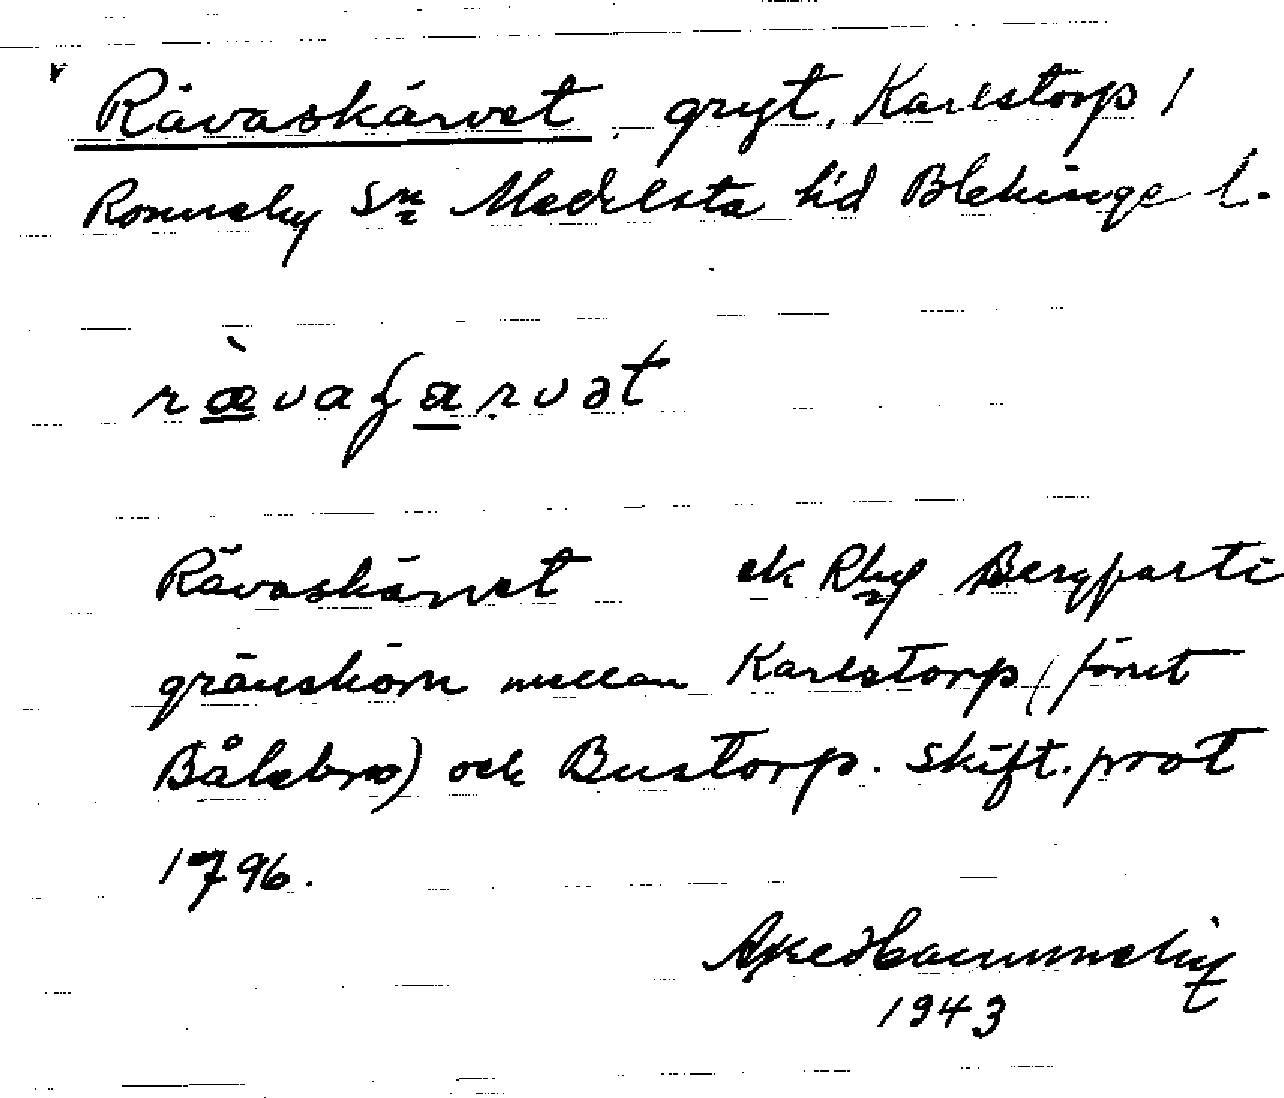 Rävaskärvet gryt, Karlstorp 1
Ronneby Sn Medelsta hd Blekinge l.
rævaʃarvət
Rävaskärvet ek Rby Bergparti
gränshörn mellan Karlstorp (förut
Bålebro) och Bustorp. Skift.prot
1796.
Åke Hammneby
1943